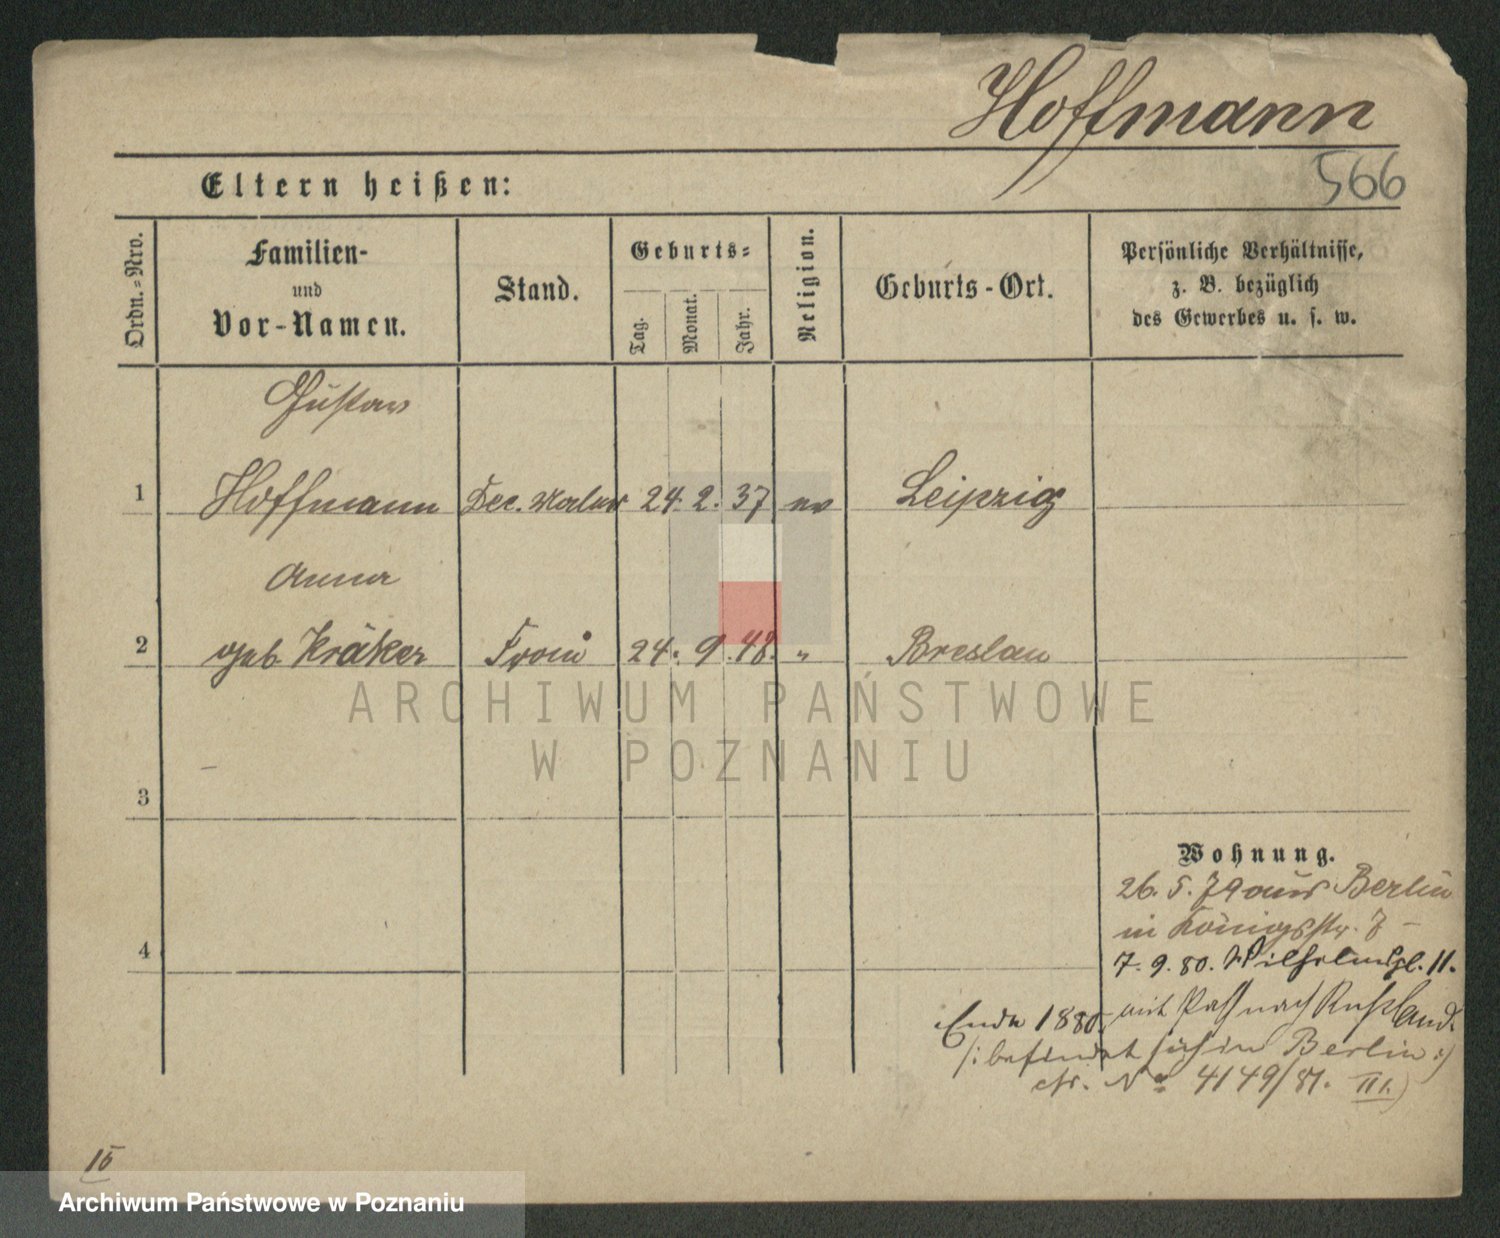 Hoffmann
566
Eltern heißen:
Ordn.-Nro.
Familien-
und
Vor-Namen.
Stand.
Geburts-
Tag.
Monat.
Jahr.
Religion.
Geburts-Ort.
Persönliche Verhältnisse,
z. B. bezüglich
des Gewerbes u. s. w.
Gustav
1 Hoffmann Dec. Maler 24. 2. 37 ev Leipzig
Anna
2 geb. Kräker Frau 24. 9. 48. " Breslau
ARCHIWUM PAŃSTWOWE
W POZNANIU
3
Wohnung.
26. 5. 79 aus Berlin
in Königsstr. 7 -
4
7. 9. 80. Wilhelmspl. 11.
Ende 1880. mit Paß nach Rußland.
/: befindet sich in Berlin :/
cfr. No 4149/81. III.)
15
Archiwum Państwowe w Poznaniu